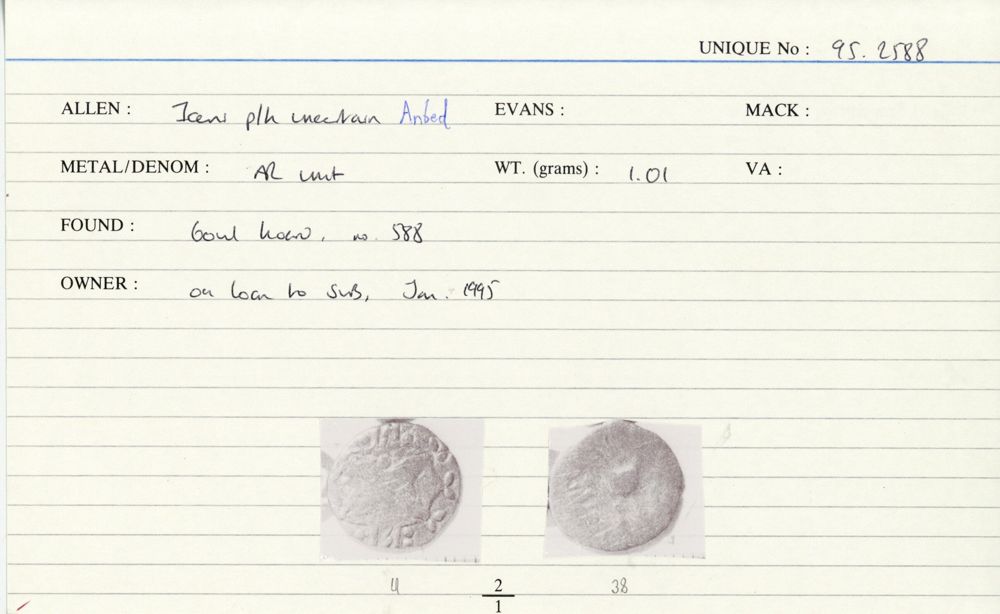 UNIQUE No : 95. 2588
ALLEN : Iceni p/h uncertain Anbed EVANS : MACK :
METAL/DENOM : AR unit WT. (grams) : 1.01 VA :
FOUND : hoard, no. 588
OWNER : on loan to SUB, Jan. 1995
2 38
1